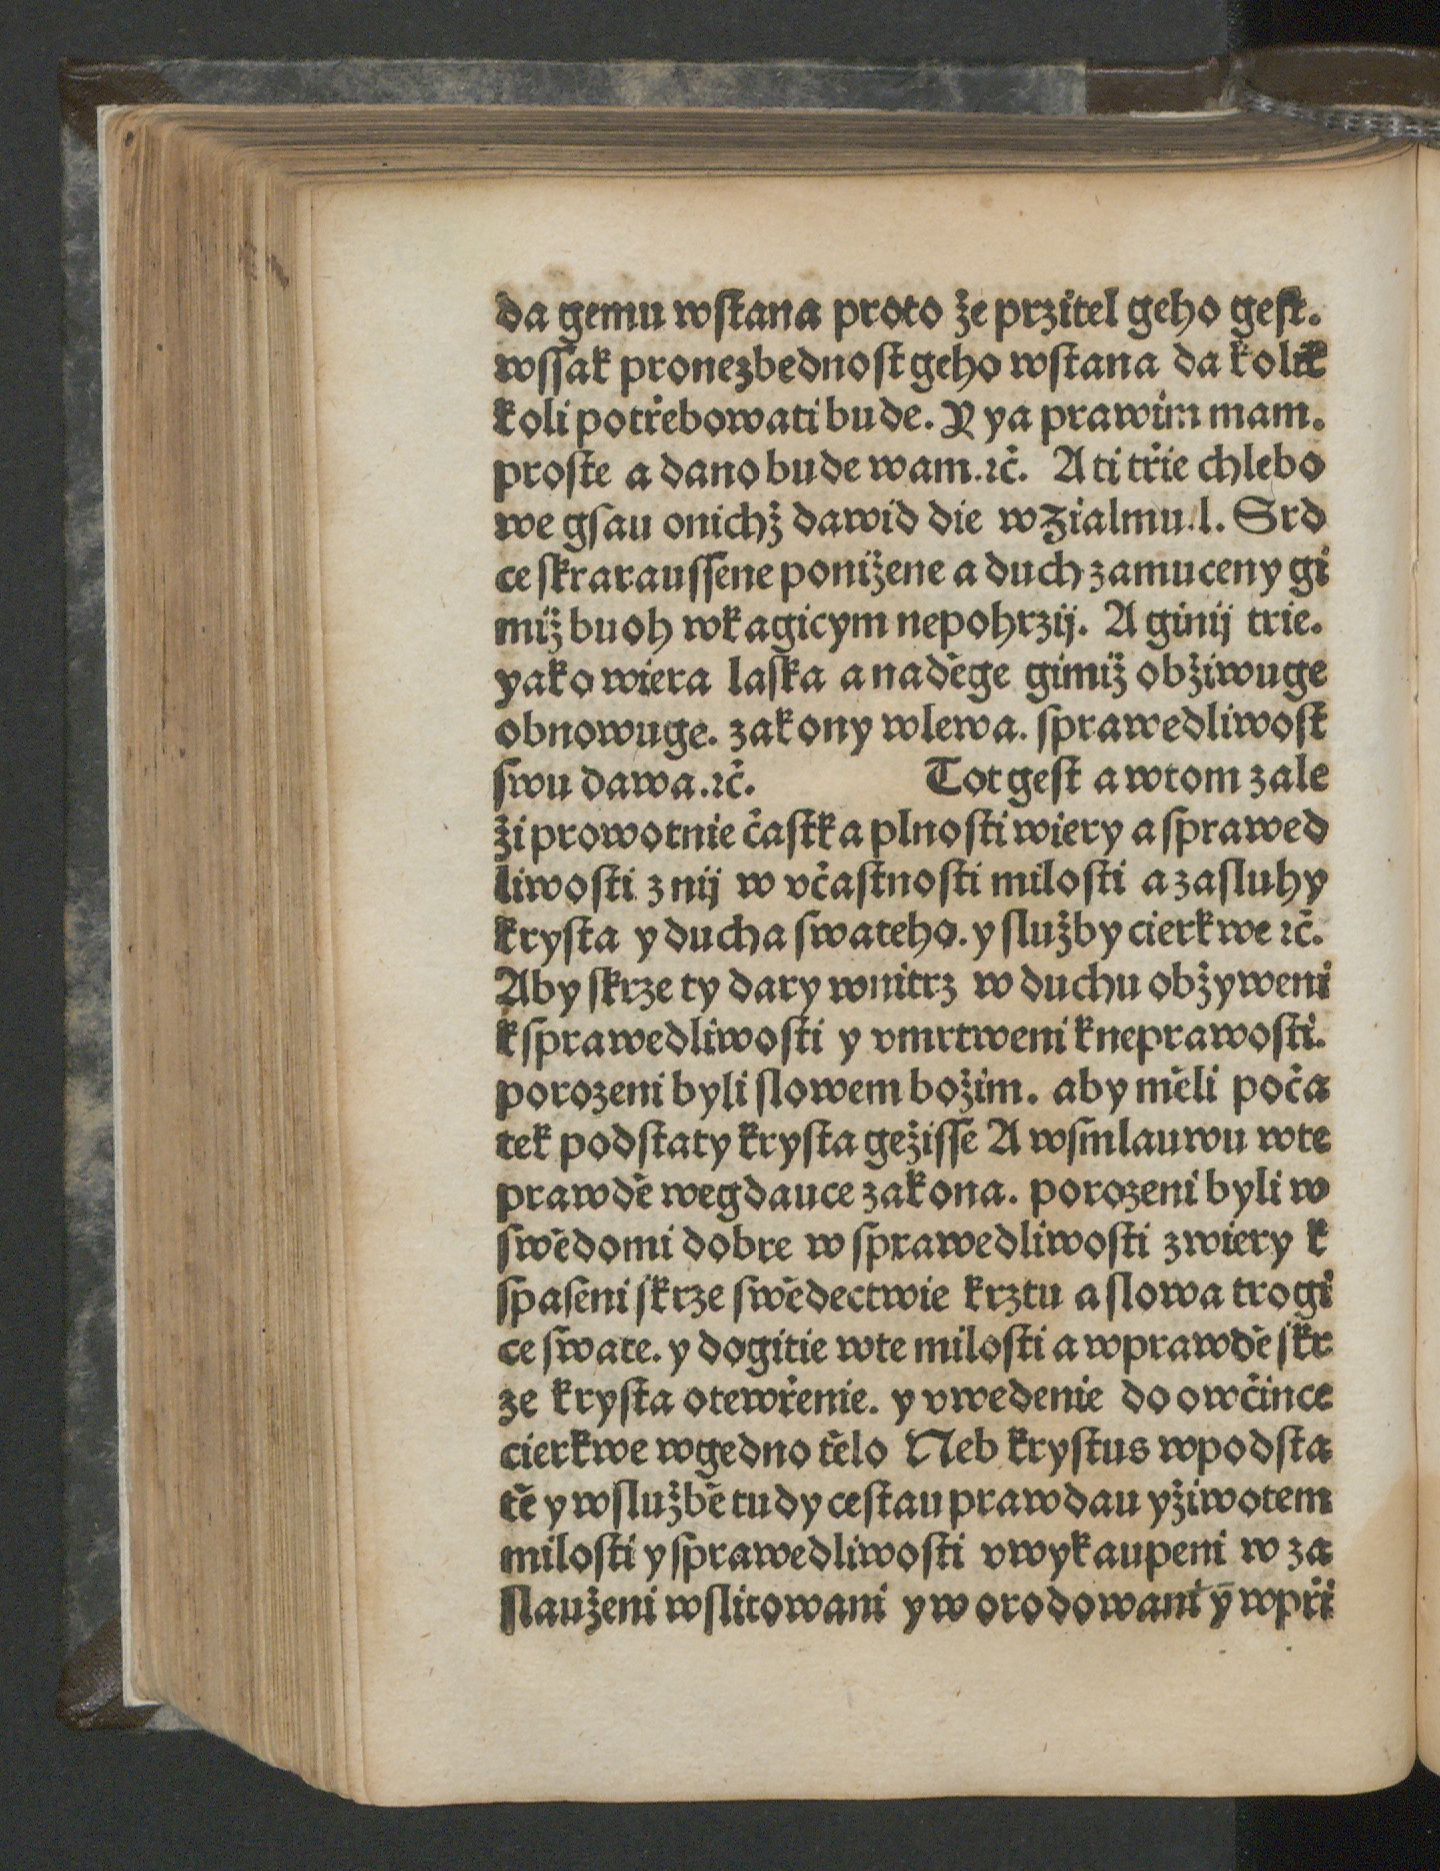 da gemu wſtana proto že przitel geho geſt.
wſſak pronezbednoſt geho wſtana da kolik
koli potřebowati bude. Y ya prawim mam.
proſte a dano bude wam.ꝛč. A ti třie chlebo
we gſau onichž dawid die wZialmu.l. Srd
ce ſkraraufſene ponižene a duch zamuceny gi
mijž buoh wkagicym nepohrzij. A ginij trie.
yako wiera laſka a naděge gimiž obžiwuge
obnowuge. zakony wlewa. ſprawedliwoſt
ſwu dawa.ꝛč. Tot geſt a wtom zale
ži prowotnie čaſtka plnoſti wiery a ſprawed
liwoſti z nij w včaſtnoſti miloſti a zaſluhy
kryſta y ducha ſwateho. y ſlužby cierkwe ꝛč.
Aby ſkrze ty dary wnitrz w duchu obžyweni
k ſprawedliwoſti y vmrtweni kneprawoſti.
porozeni byli ſlowem božim. aby měli poča
tek podſtaty kryſta gežiſſe A wſmlauwu wte
prawdě wegdauce zakona. porozeni byli w
ſwědomi dobre w ſprawedliwoſti zwiery k
ſpaſeni ſkrze ſwědectwie krztu a ſlowa trogi
ce ſwate. y dogitie wte miloſti a wprawdě ſkr
ze kryſta otewřenie. y vwedenie do owčince
cierkwe wgedno tělo Neb kryſtus wpodſta
tě y wſlužbě tudy ceſtau prawdau yžiwotem
miloſti y ſprawedliwoſti vwykaupeni w za
ſlauženi wſlitowani y w orodowani ȳ wpři